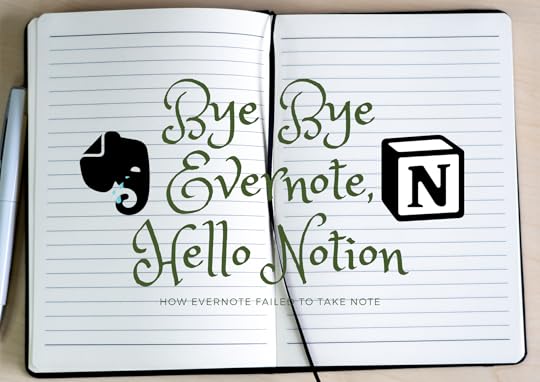 Bye Bye
Evernote,
N
Hello Notion
HOW EVERNOTE FAILED TO TAKE NOTE